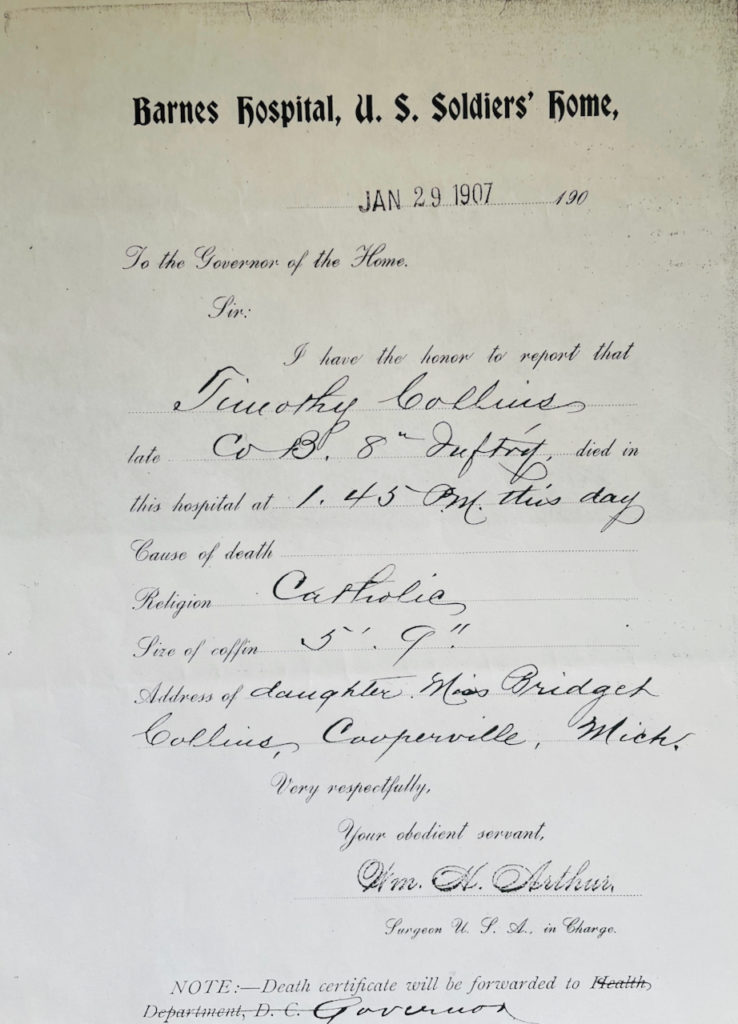 Barnes Hospital, U. S. Soldiers' Home,
JAN 29 1907 190
To the Governor of the Home.
Sir:
I have the honor to report that
Timothy Collins
late Co B. 8" Inftry, died in
this hospital at 1.45 P.M. this day
Cause of death
Religion Catholic
Size of coffin 5'. 9"
Address of daughter. Miss Bridget
Collins, Cooperville, Mich.
Very respectfully,
Your obedient servant,
Wm. H. Arthur.
Surgeon U. S. A., in Charge.
NOTE:—Death certificate will be forwarded to Health
Department, D. C. Governor